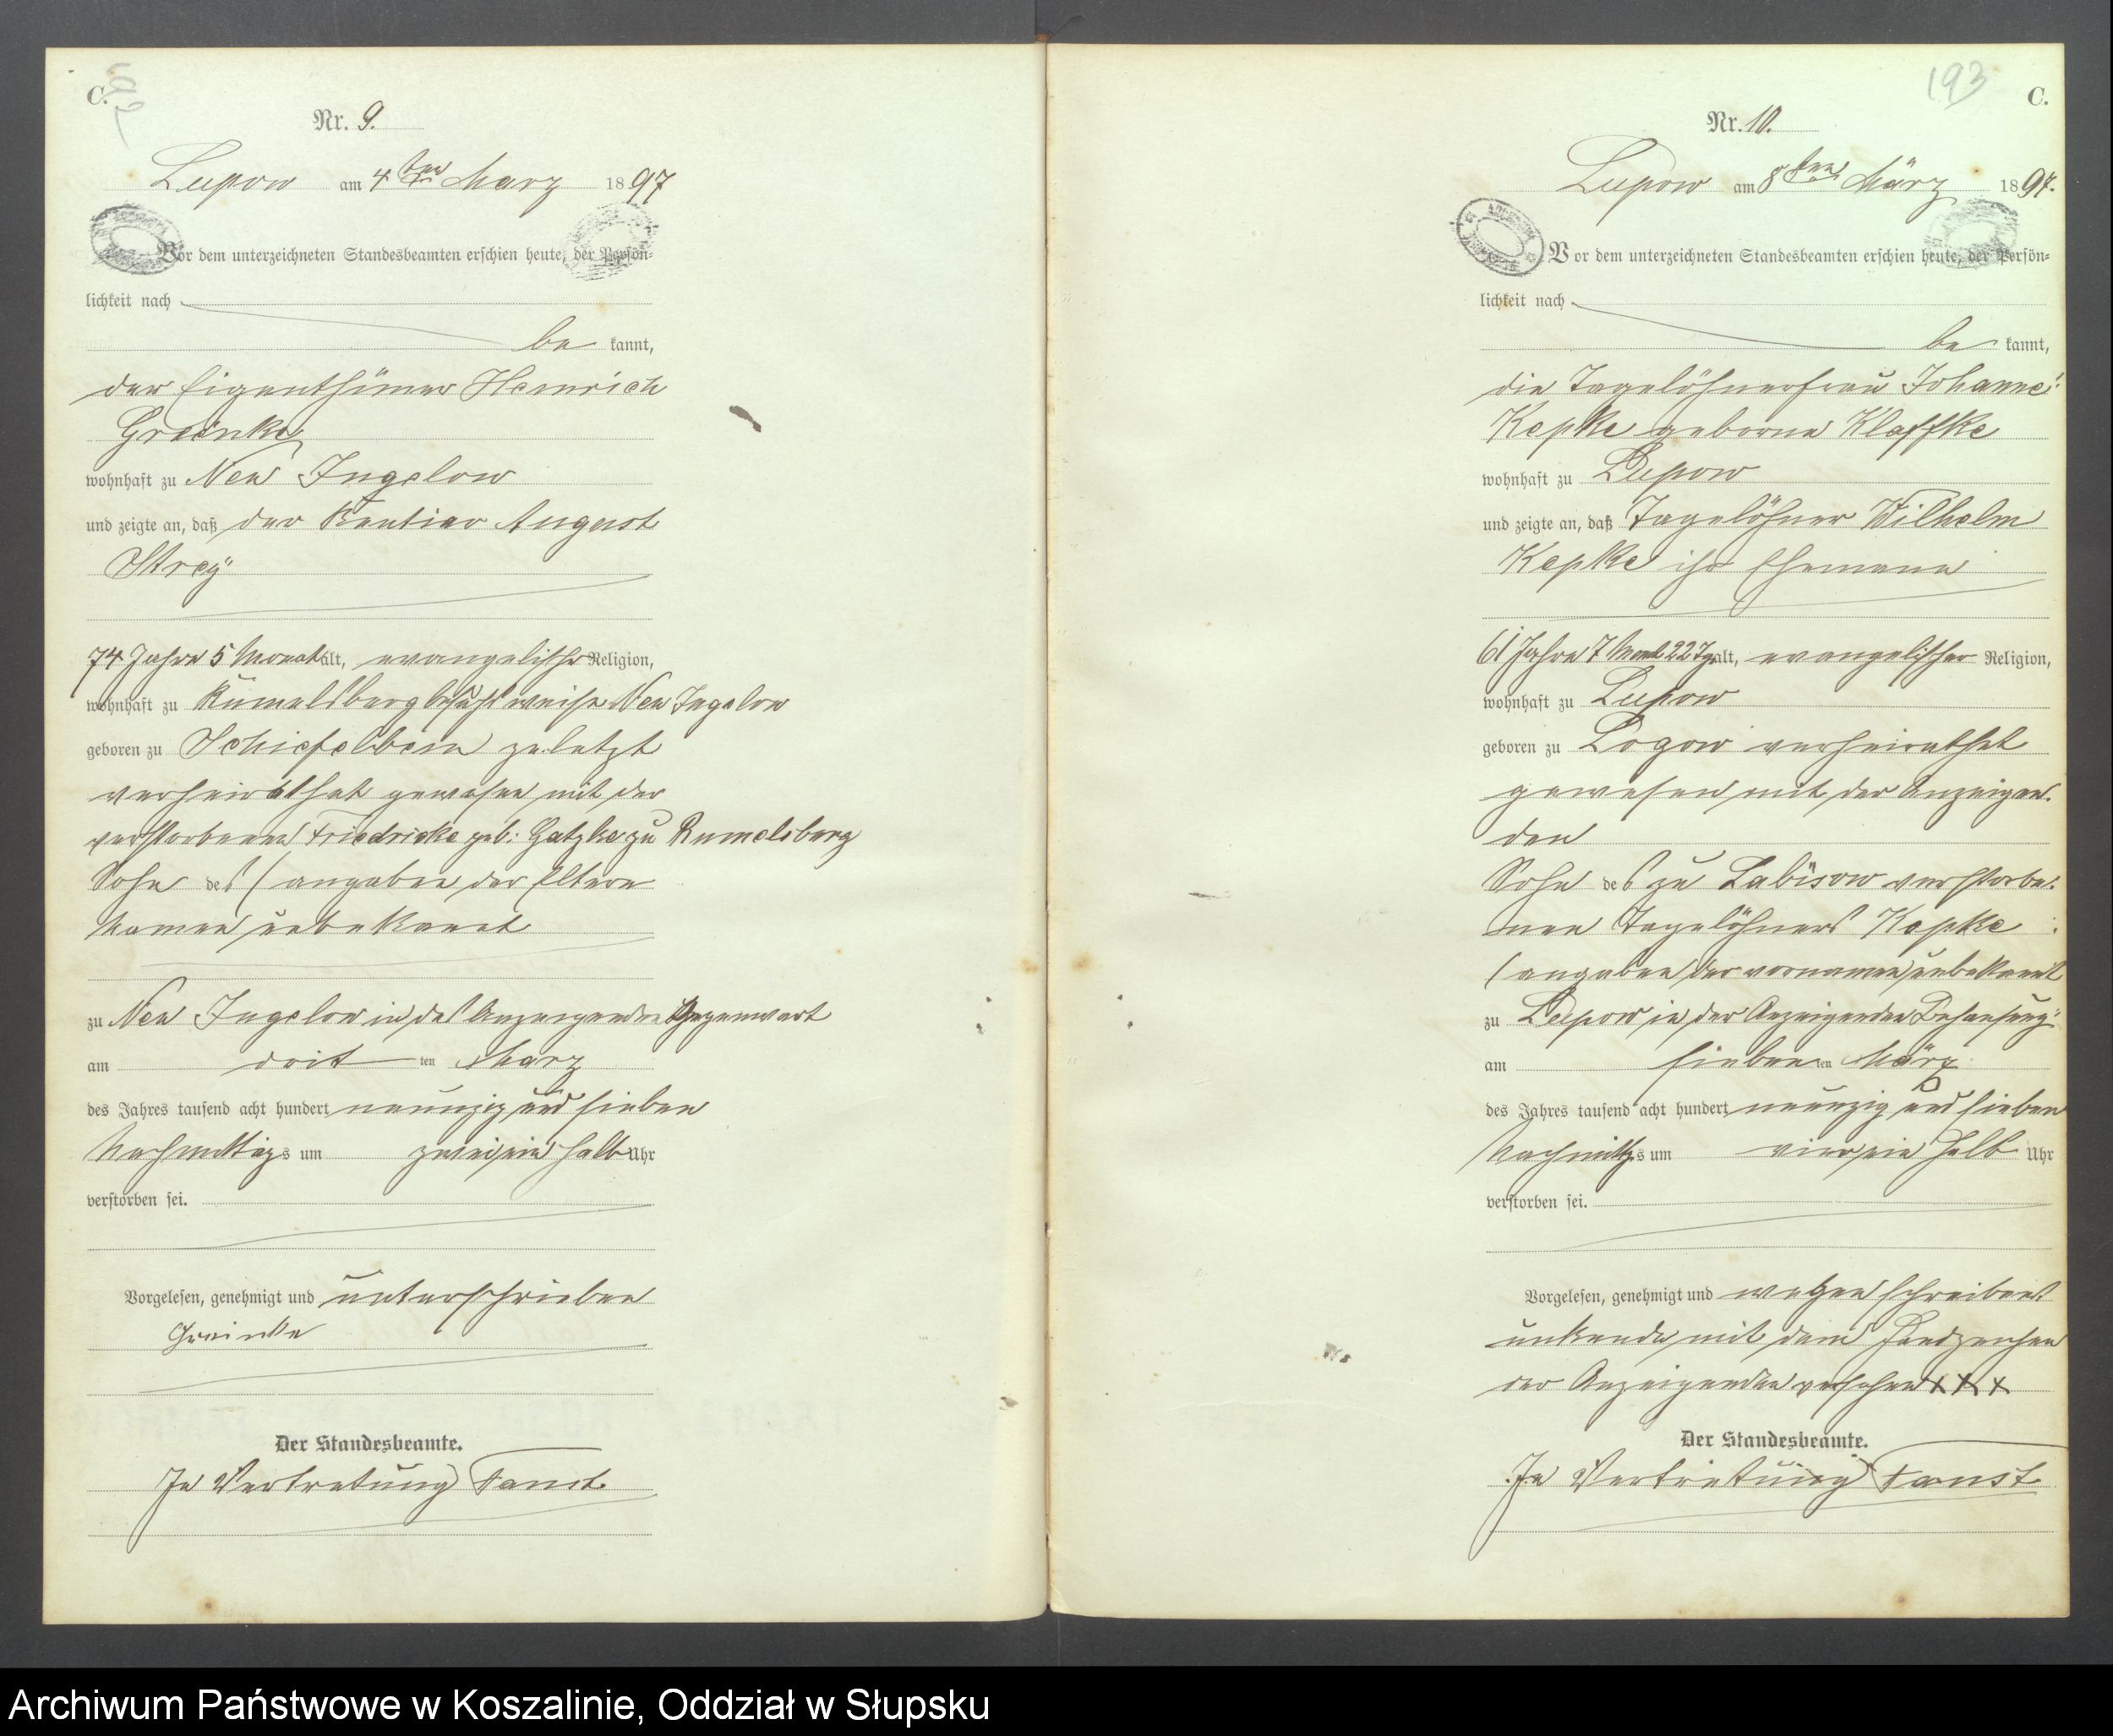 C.
Nr. 9.
Lupow am 4ten März 1897
Vor dem unterzeichneten Standesbeamten erschien heute, der Persön-
lichkeit nach
be kannt,
der Eigenthümer Heinrich
Greinke
wohnhaft zu Neu Jugelow
und zeigte an, daß der Rentier August
Strey
74 Jahre 5 Monat alt, evangelischer Religion,
wohnhaft zu Rummelsburg besuchsweise Neu Jugelow
geboren zu Schiefelbein zuletzt
verheirathet gewesen mit der
verstorbenen Friedricke geb: Gatzke zu Rumelsburg
Sohn des (angaben der Eltern
Namen unbekannt
zu Neu Jugelow in des Anzeigenden Gegenwart
am dritten März
des Jahres tausend acht hundert neunzig und sieben
Nachmittags um zwei ein halb Uhr
verstorben sei.
Vorgelesen, genehmigt und unterschrieben
Greinke
Der Standesbeamte.
In Vertretung Faust
193
C.
Nr. 10.
Lupow am 8ten März 1897.
Vor dem unterzeichneten Standesbeamten erschien heute, der Persön-
lichkeit nach
be kannt,
die Tagelöhnerfrau Johanne
Kepke geborne Klaffke
wohnhaft zu Lupow
und zeigte an, daß Tagelöhner Wilhelm
Kepke ihr Ehemann
61 Jahre 7 Mont 22 Tg alt, evangelischer Religion,
wohnhaft zu Lupow
geboren zu Logow verheirathet
gewesen mit der Anzeigen-
den
Sohn des zu Labüsow verstorbe-
nen Tagelöhners Kepke
(angaben der vornamen unbekannt
zu Lupow in der Anzeigenden Behausung
am siebenten März
des Jahres tausend acht hundert neunzig und sieben
Nachmittgs um vier ein halb Uhr
verstorben sei.
Vorgelesen, genehmigt und wegen schreibens
unkunde mit dem Handzeichen
der Anzeigenden versehen XXX
Der Standesbeamte.
In Vertretung Faust
Archiwum Państwowe w Koszalinie, Oddział w Słupsku